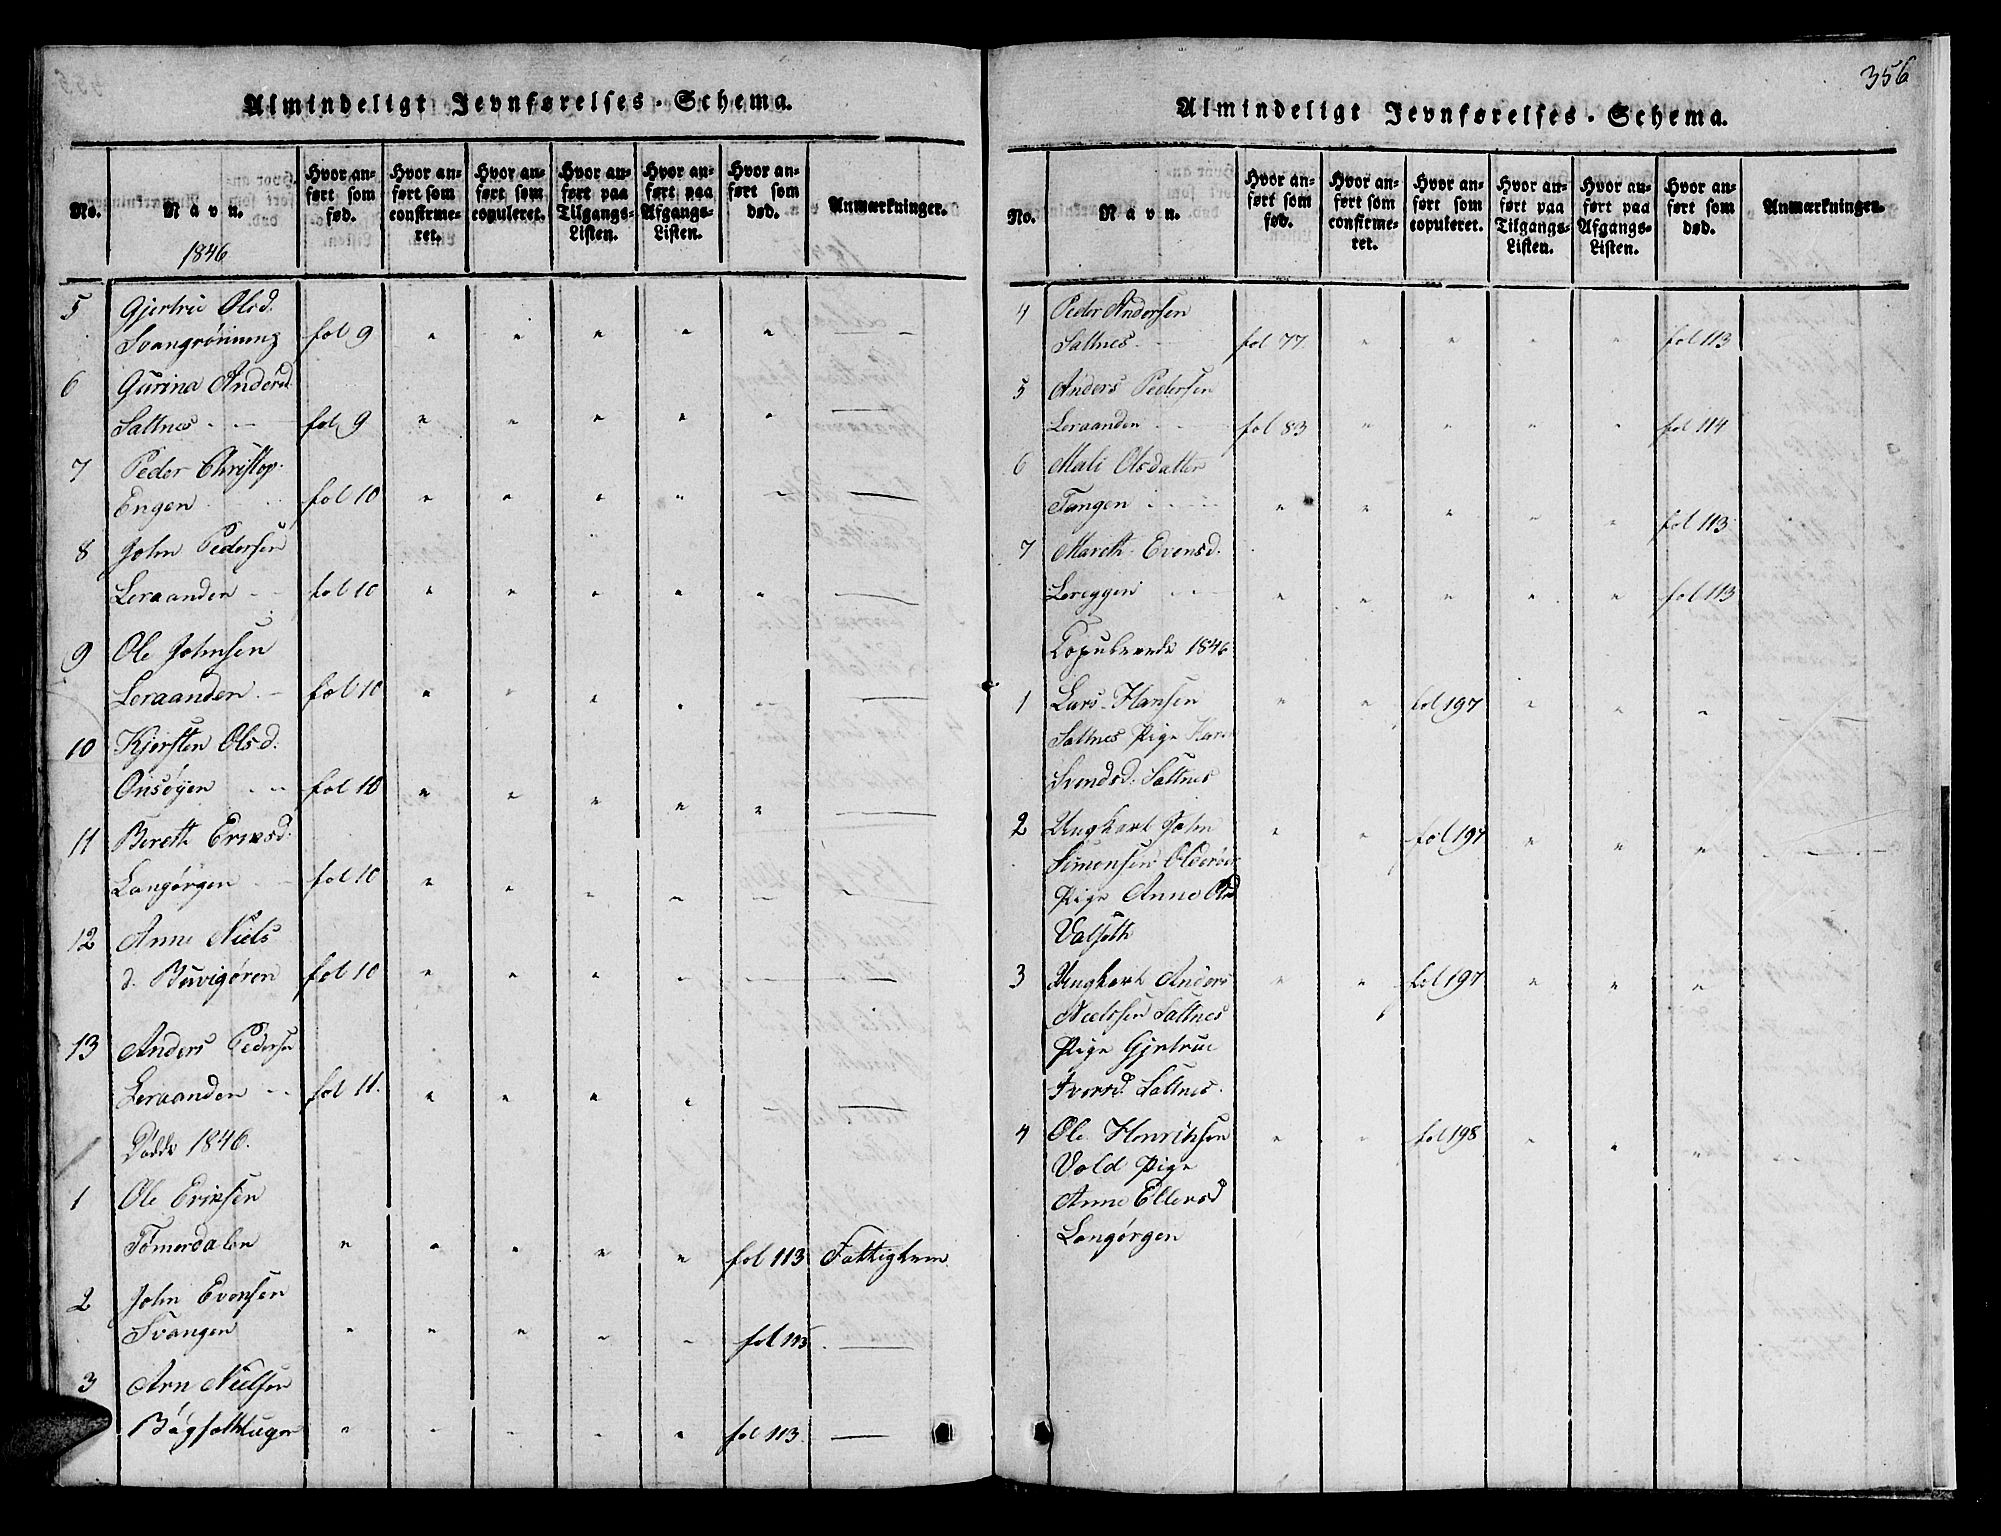 Almindeligt Jevnførelses-Schema.
No.
Navn.
1846
Hvor anført som fød.
Hvor anført som confirmeret.
Hvor anført som copuleret.
Hvor anført paa Tilgangs-Listen.
Hvor anført paa Afgangs-Listen.
Hvor anført som død.
Anmærkninger.
5 Gjertrue Olsd.
Svangrøning fol 9 " " " " " —
6 Gurina Andersd
Saltnes fol 9 " " " " " —
7 Peder Christop.
Engen fol 10 " " " " " —
8 John Pedersen
Leraanden fol 10 " " " " " —
9 Ole Johnsen
Leraanden fol 10 " " " " " —
10 Kjersten Olsd.
Onsøyen fol 10 " " " " " —
11 Bereth Eriksd.
Langørgen fol 10 " " " " " —
12 Anne Niels
d. Buvigøren fol 10 " " " " " —
13 Anders Pedersen
Leraanden fol 11. " " " " " —
Dödde 1846.
1 Ole Eriksen
Tømerdalen " " " " " fol 113 Fattiglem
2 John Evensen
Svangen " " " " " fol 113 —
3 Arn Nielsen
" " " " " fol 113. —
356
Almindeligt Jevnførelses-Schema.
No.
Navn.
Hvor anført som fød.
Hvor anført som confirmeret.
Hvor anført som copuleret.
Hvor anført paa Tilgangs-Listen.
Hvor anført paa Afgangs-Listen.
Hvor anført som død.
Anmærkninger.
4 Peder Andersen
Saltnes fol 77 " " " " fol 113
5 Anders Pedersen
Leraanden fol 83 " " " " fol 114
6 Mali Olsdatter
Tangen " " " " " fol 113
7 Mareth Evensd.
Lereggen " " " " " fol 113
Copulerede 1846
1 Lars Hansen " " fol 197 " " "
Saltnes Pige Karen
Svendsd. Saltnes
2 Ungkarl John " " fol 197 " " "
Simensen Olderøen
Pige Anne Olsd
Valseth
3 Ungkarl Anders " " fol 197 " " "
Nielssen Saltnes
Pige Gjertrue
Iversd. Saltnes.
4 Ole Henriksen " " fol 198 " " "
Vold Pige
Anne Ellevsd
Langørgen